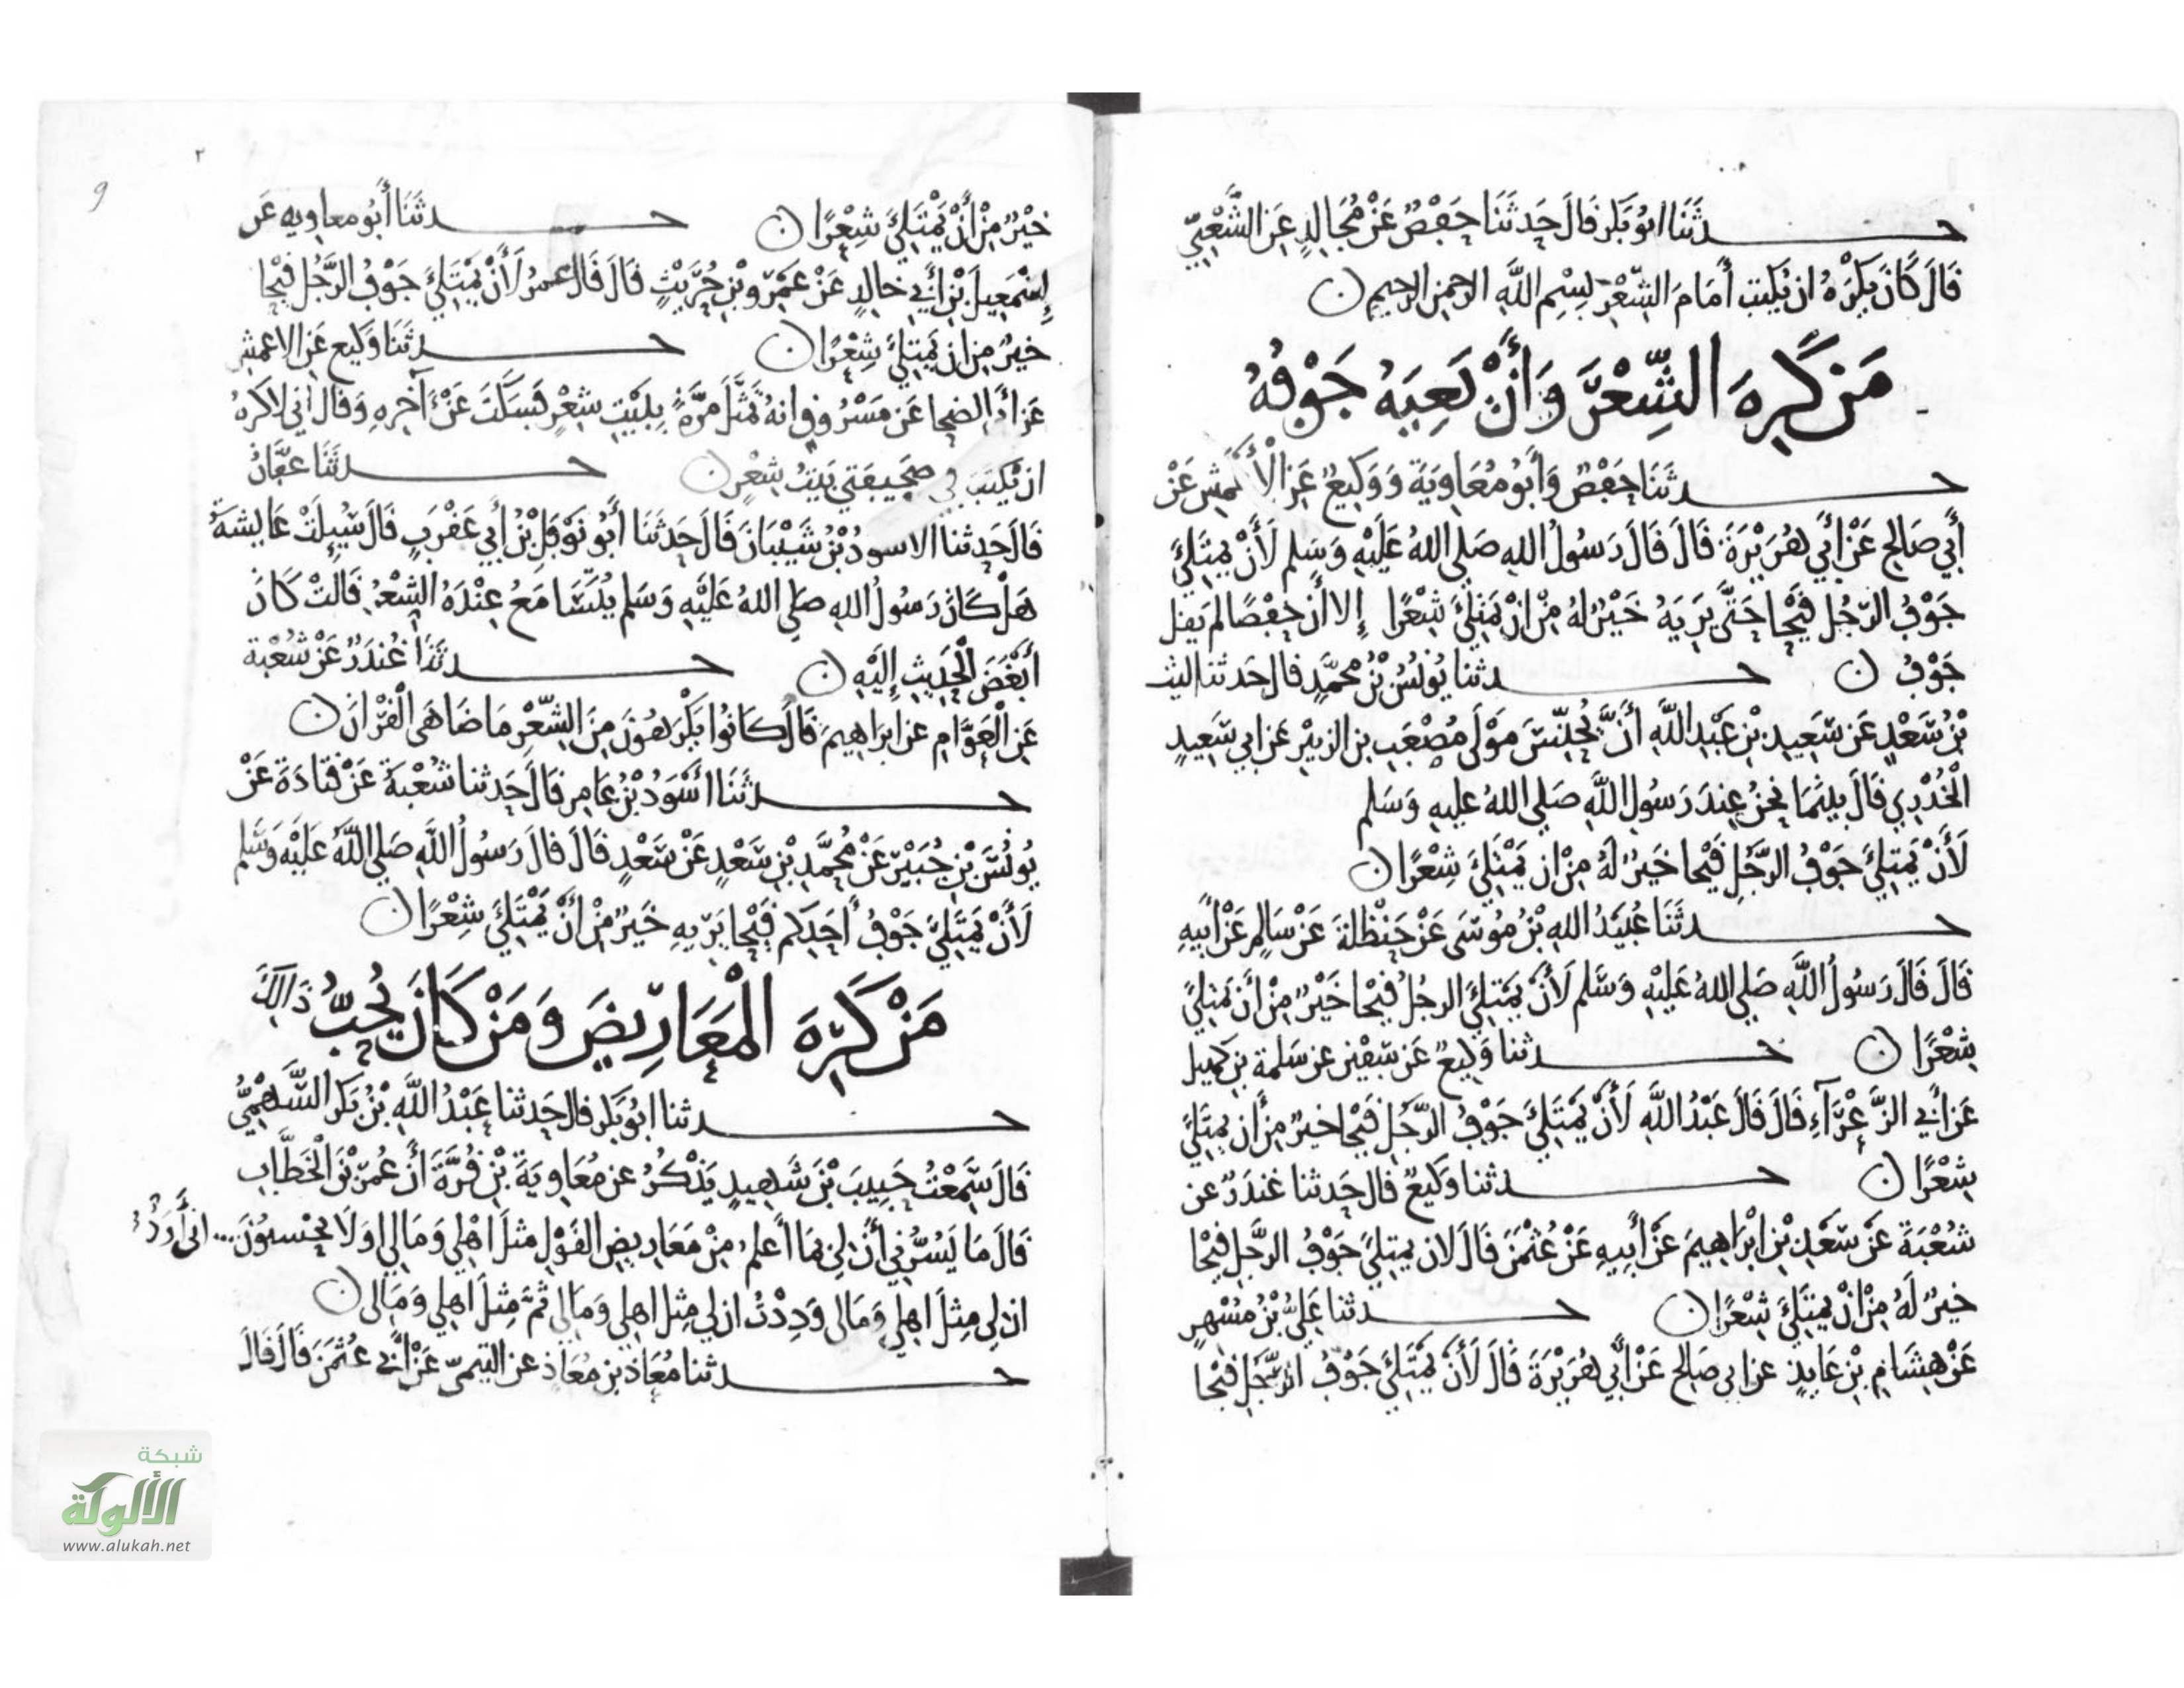 حدثنا ابو بكر قال حدثنا حفص عن مجالد عن الشعبي
قال كان يكره ان يكتب أمام الشعر بسم الله الرحمن الرحيم ن
من كره الشعر وأن يعيه جوفه
حدثنا حفص وأبو معاوية ووكيع عن الأعمش عن
أبي صالح عن أبي هريرة قال قال رسول الله صلى الله عليه وسلم لأن يمتلئ
جوف الرجل قيحا حتى يريه خير له من ان يمتلئ شعرا إلا أن حفصا لم يقل
جوف ن حدثنا يونس بن محمد قال حدثنا ليث
بن سعد عن سعيد بن عبد الله أن يحنس مولى مصعب بن الزبير عن ابي سعيد
الخدري قال بينما نحن عند رسول الله صلى الله عليه وسلم
لأن يمتلئ جوف الرجل قيحا خير له من ان يمتلئ شعرا ن
حدثنا عبيد الله بن موسى عن حنظلة عن سالم عن أبيه
قال قال رسول الله صلى الله عليه وسلم لأن يمتلئ الرجل قيحا خير من أن يمتلئ
شعرا ن حدثنا وكيع عن سفين عن سلمة بن كهيل
عن أبي الزعراء قال قال عبد الله لأن يمتلئ جوف الرجل قيحا خير من أن يمتلئ
شعرا ن حدثنا وكيع قال حدثنا غندر عن
شعبة عن سعد بن ابراهيم عن أبيه عن عثمن قال لان يمتلئ جوف الرجل قيحا
خير له من ان يمتلئ شعرا ن حدثنا علي بن مسهر
عن هشام بن عايذ عن ابي صالح عن أبي هريرة قال لأن يمتلئ جوف الرجل قيحا
٢
9
خير من أن يمتلئ شعرا ن حدثنا أبو معاويه عن
إسمعيل بن أبي خالد عن عمرو بن حريث قال قال عمر لأن يمتلئ جوف الرجل قيحا
خير من ان يمتلئ شعرا ن حدثنا وكيع عن الاعمش
عن أبي الضحا عن مسروق انه تمثل مرة ببيت شعر فسكت عن آخره وقال اني لاكره
ان يكتب في صحيفتي بيت شعر ن حدثنا عفان
قال حدثنا الاسود بن شيبان قال حدثنا أبو نوفل بن أبي عقرب قال سيلت عايشة
هل كان رسول الله صلى الله عليه وسلم يتسامع عنده الشعر قالت كان
أبغض الحديث إليه ن حدثنا غندر عن شعبة
عن العوام عن ابراهيم قال كانوا يكرهون من الشعر ما ضاهى القرآن ن
حدثنا أسود بن عامر قال حدثنا شعبة عن قتادة عن
يونس بن جبير عن محمد بن سعد عن سعد قال قال رسول الله صلى الله عليه وسلم
لأن يمتلئ جوف أحدكم قيحا يريه خير من أن يمتلئ شعرا ن
من كره المعاريض ومن كان يحب ذالك
حدثنا ابو بكر قال حدثنا عبد الله بن بكر السهمي
قال سمعت حبيب بن شهيد يذكر عن معاوية بن قرة أن عمر بن الخطاب
قال ما يسرني أن لي بما أعلم من معاريض القول مثل اهلي ومالي او لا يحسبون... اني أود
ان لي مثل اهلي ومالي وددت ان لي مثل اهلي ومالي ثم مثل اهلي ومالي ن
حدثنا معاذ بن معاذ عن التيمي عن أبي عثمن قال قال
شبكة
الألوكة
www.alukah.net